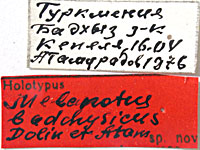 Туркмения
Бадхыз з-к
Кепеля, 16.04
Атамурадов 1976
Holotypus
Melanotus
badchysicus
Dolin et Atam.
sp. nov